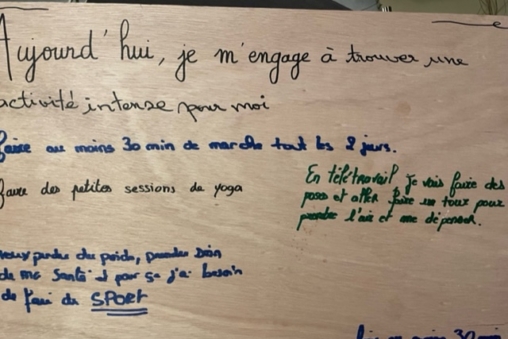 Aujourd'hui, je m'engage à trouver une
activité intense pour moi
faire au moins 30 min de marche tout les 2 jours.
En télétravail je vais faire des
poses et aller faire un tour pour
prendre l'air et me dépenser.
faire des petites sessions de yoga
veux perdre du poids, prendre soin
de ma santé et pour ça j'ai besoin
de faire du SPORT
30 min